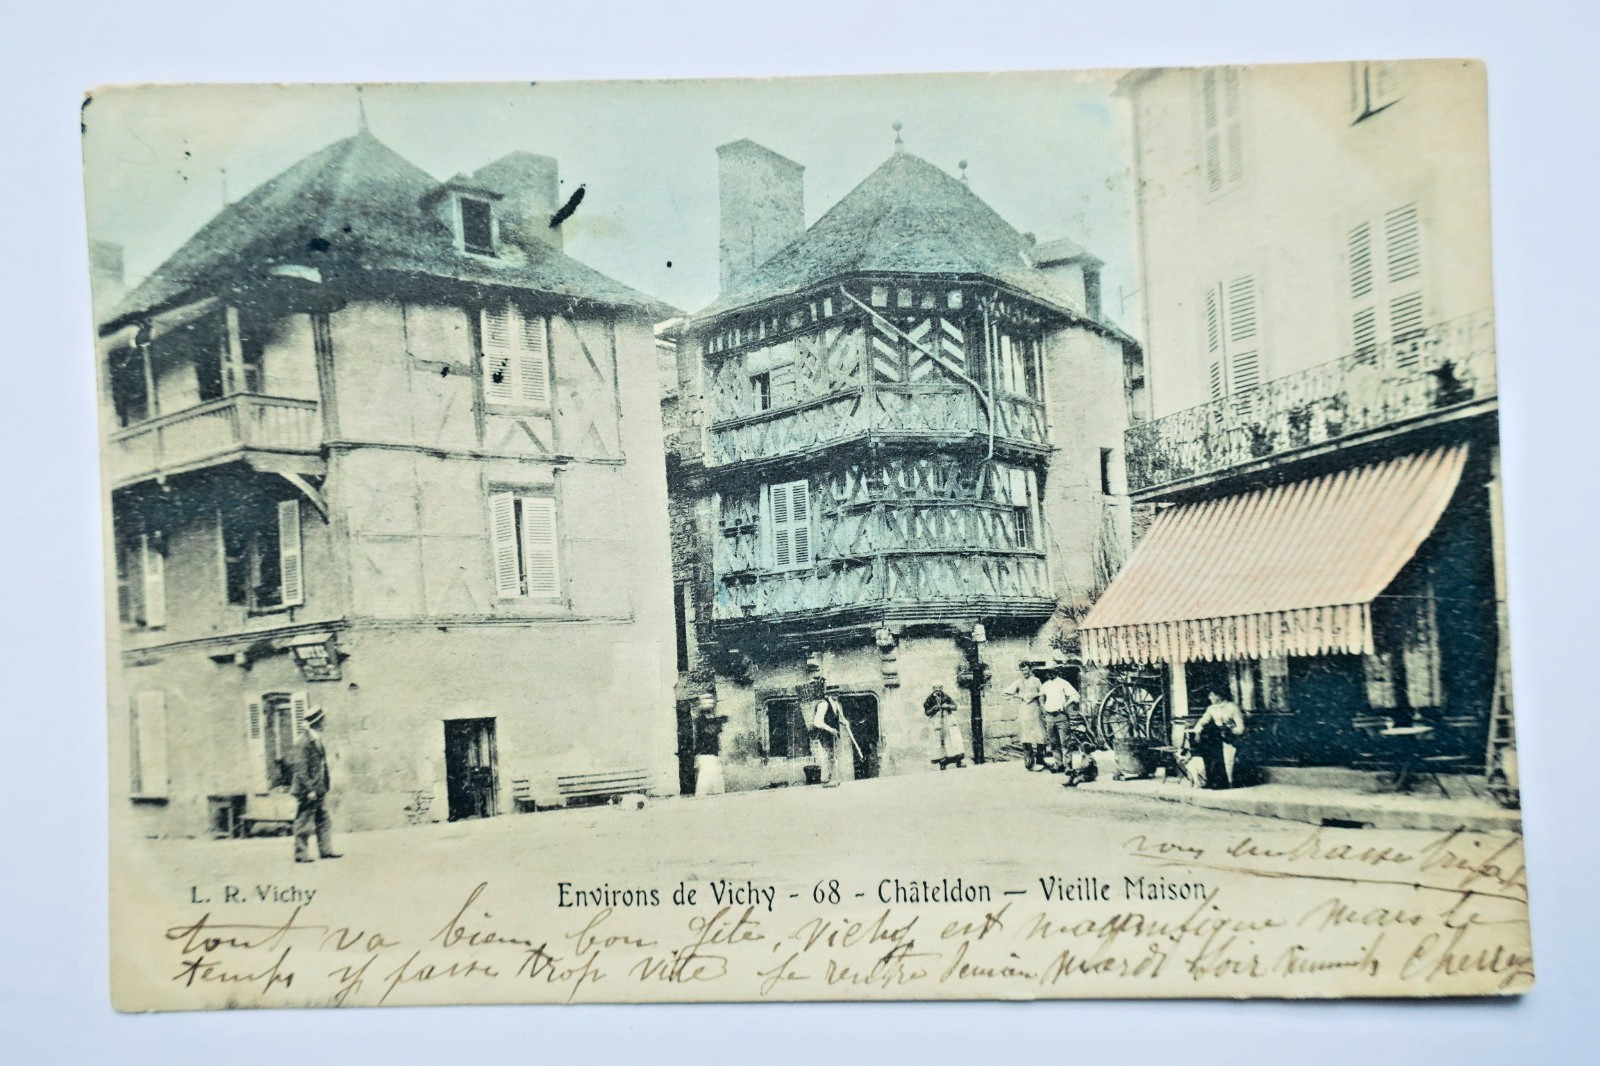 HOTEL
L. R. Vichy
Environs de Vichy - 68 - Châteldon — Vieille Maison
vous embrasse
tout va bien, bon gite, Vichy est magnifique mais le
temps y passe trop vite je rentre demain mardi soir